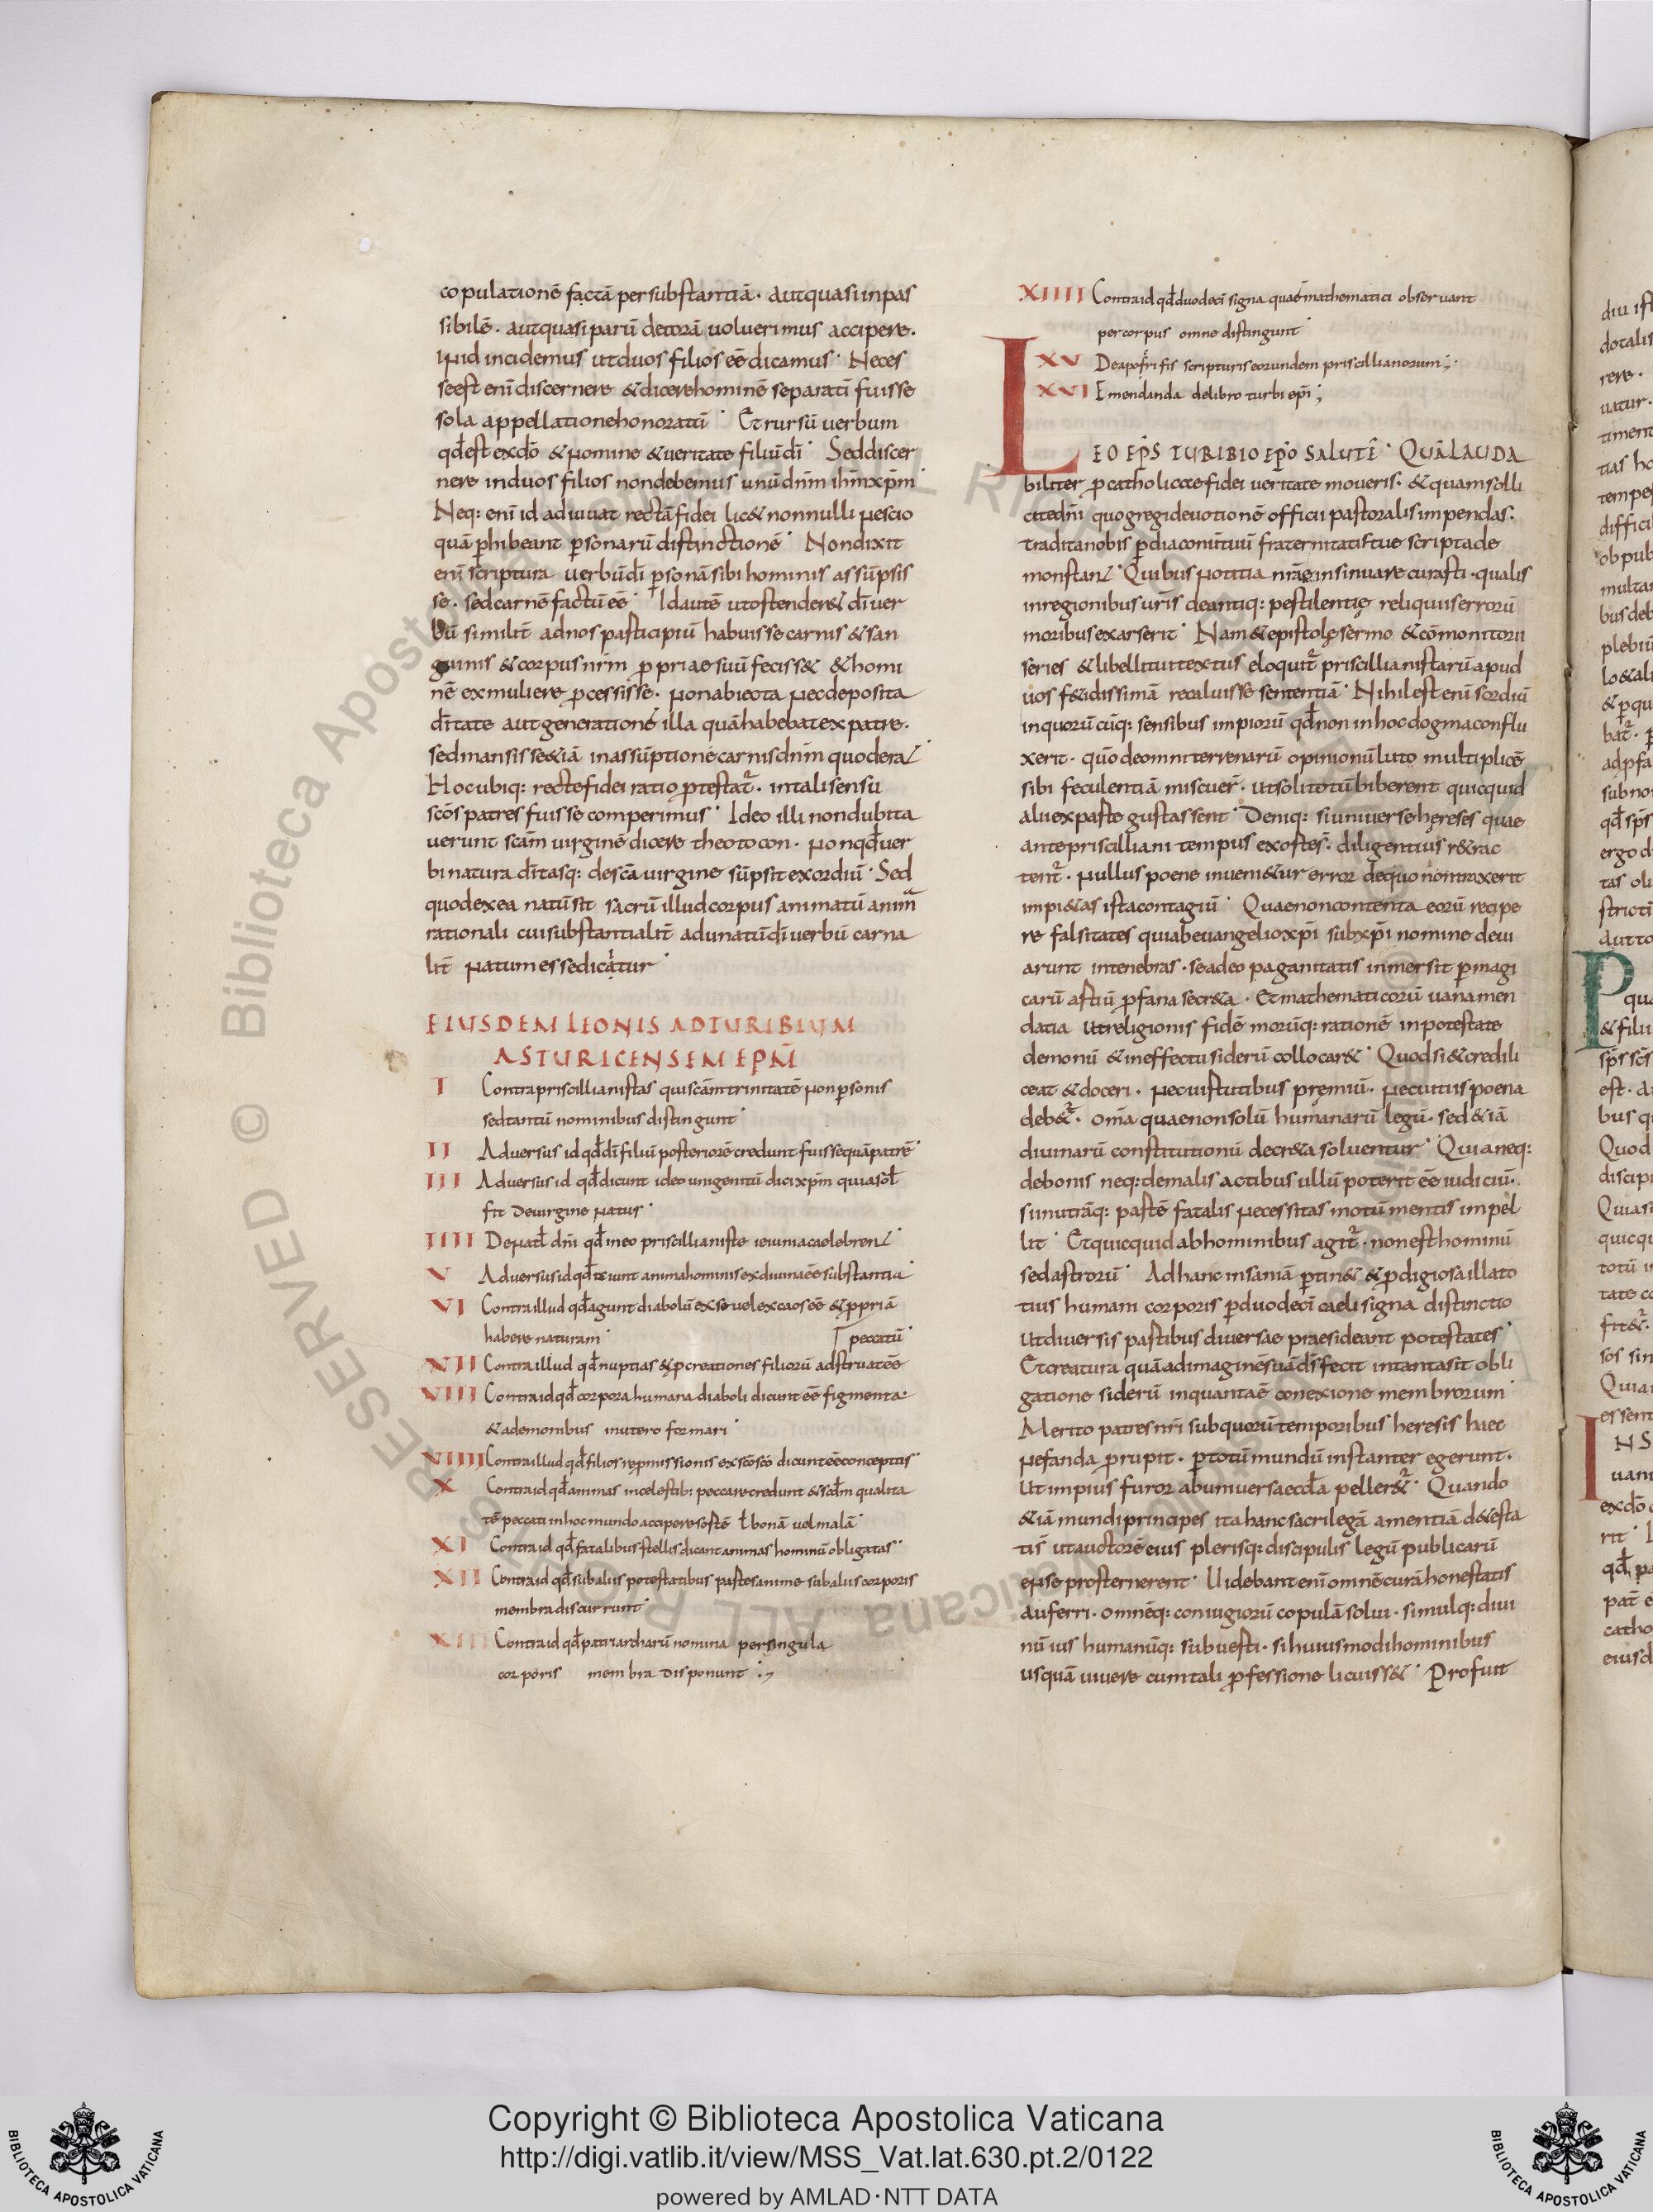 copulationē factā persubstantiā. autquasiinpas
sibilē. autquasiparū decorā uoluerimus accipere.
inid incidemus utduos filios eē dicamus. Neces
seest enī discernere &dicerehominē separatī fuisse
sola appellationehonoratū. Etrursū uerbum
qđest exdō &nomine &ueritate filiūdī. Seddiscer
nere induos filios nondebemus unūdn̄m ihm̄xp̄m
Neq: enī id adiuuat rectāfidei lic& nonnulli nescio
quā phibeant psonarū distinctionē. Nondixit
enī scriptura uerbūdī psonāsibi hominis assūpsis
se. sedcarnē factū eē. Idautē utostender& dī uer
bū similit̄ adnos participiū habuisse carnis &san
guinis &corpus nr̄m ppriae suū feciss& &homi
nē exmuliere pcessisse. nonabiecta necdeposita
dītate autgenerationē illa quāhabebatexpatre.
sedmansisse&iā inassūptione carnis dn̄m quodera&
Hocubiq: rectefidei ratio ptestat̄. intalisensu
scōs patres fuisse comperimus. Ideo illi nondubita
uerunt scām uirginē dicere theotocon. nonqđuer
binatura dītasq: descā uirgine sūpsit exordiū. Sed
quodexea natū sit sacrū illud corpus animatū anima
rationali cuisubstantialit̄ adunatūdī uerbū carna
lit̄ natum essedicatur.
EIUSDEM LEONIS ADTURIBIUM
ASTURICENSEM EPM̄
I Contrapriscillianistas quiscāmtrinitatē nonpsonis
sedtantū nominibus distingunt.
II Aduersus id qđdī filiū posteriorē credunt fuissequāpatrē.
III Aduersus id qđdicunt ideo unigenitū dicixp̄m quiasol
sit deuirgine natus.
IIII Denat̄ dn̄i qđineo priscillianiste ieiuniacaelebren&.
V Aduersusidqđaiunt animāhominisexdiuinaēesubstantia.
VI Contraillud qđaiunt diabolū exseuelexcaos eē &ppriā
habere naturam. peccatū.
VII Contraillud qđnuptias &pcreationes filiorū adstruateē
VIII Contraid qđcorpora humana diaboli dicunt eē figmenta.
&ademonibus inutero formari.
VIIII Contraillud qđfilios repmissionis exscōscō dicunteēconceptus.
X Contraid qđanimas incelestib: peccarecredunt &scđm qualita
tē peccati inhoc mundo accipere sortē ł bonā uelmalā.
XI Contraid qđfatalibus stellis dicant animas hominū obligatas.
XII Contraid qđsubaliis potestatibus partesanime subaliis corporis
membradiscurrunt.
XIII Contraid qđpatriarcharū nomina persingula
corporis membra disponunt.
XIIII Contraid qđduodecī signa quaemathematici obseruant
percorpus omne distingunt.
XV Deapocrifis scripturis eorundem priscillianorum;.
XVI Emendanda delibro turbi epī;
LEO EPS̄ TURIBIO EPŌ SALUTĒ. QUĀLAUDA
biliter pcatholicae fidei ueritate moueris. &quamsolli
citedn̄i quogregideuotionē officii pastoralis impendas.
traditanobis pdiaconūtuū fraternitatistue scriptade
monstan&. Quibus notitia nr̄aeinsinuare curasti. qualis
inregionibus ur̄is deantiq: pestilentie reliquiis errorū
morbus exarserit. Nam&epistole sermo &cōmonitorii
series &libellituitextus eloquit̄ priscillianistarū apud
uos f&idissimā recaluisse sententiā. Nihilest enī sordiū
inquorū cūq: sensibus impiorū qđnon inhoc dogmaconflu
xerit. quō deomniterrenarū opinionū luto multiplicē
sibi feculentiā miscuer̄. utsolitotū biberent quicquid
alii exparte gustassent. Deniq: siuniuerse hereses quae
antepriscilliani tempus exortes. diligentius r&rac
tent̄. nullus poene inueni&ur error dequonontraxerit
impi&as istacontagiū. Quaenoncontenta eorū recipe
re falsitates quiabeuangelioxp̄i subxp̄i nomine deui
arunt intenebras. seadeo paganitatis inmersit pmagi
carū artiū pfana secr&a. Etmathematicorū uanamen
datia utreligionis fidē morūq: rationē inpotestate
demonū &ineffectu siderū collocar&. Quodsi&credili
ceat &doceri. necuirtutibus premiū. necuitiis poena
deb&̄. om̄a quaenonsolū humanarū legū. sed&iā
diuinarū constitutionū decr&a soluentur. Quianeq:
debonis neq: demalis actibus ullū poterit eē iudiciū.
siinutrāq: partē fatalis necessitas motū mentis impel
lit. Etquicquid abhominibus agit̄. nonesthominū
sedastrorū. Adhanc insaniā ptin& &pdigiosaillato
tius humani corporis pduodecī caeli signa distinctio
utdiuersis partibus diuersae praesideant potestates.
Etcreatura quāadimaginēsuāds̄ fecit intantasit obli
gatione siderū inquantaē conexione membrorum.
Merito patresnr̄i subquorū temporibus heresis haec
nefanda prupit. ptotū mundū instanter egerunt.
Ut impius furor abuniuersaecclā peller&̄. Quando
&iā mundi principes ita hanc sacrilegā amentiā d&esta
tis̄ utauctorē eius plerisq: discipulis legū publicarū
ense prosternerent. Uidebant enī omnē curā honestatis
auferri. omnēq: coniugiorū copulā solui. simulq: diui
nū ius humanūq: subuerti. si huiusmodi hominibus
usquā uiuere cumtali pfessione licuiss&. Profuit
Copyright © Biblioteca Apostolica Vaticana
http://digi.vatlib.it/view/MSS_Vat.lat.630.pt.2/0122
powered by AMLAD·NTT DATA
BIBLIOTECA APOSTOLICA VATICANA
BIBLIOTECA APOSTOLICA VATICANA